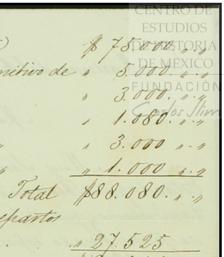 CENTRO DE
ESTUDIOS
DE HISTORIA
DE MÉXICO
FUNDACIÓN
Carlos Slim
$ 75.000 " "
nitivo de " 5.000 " "
" 3.000 " "
" 1.080 " "
" 3.000 " "
" 1.000 " "
Total $88.080 " "
epartos
" 27.525